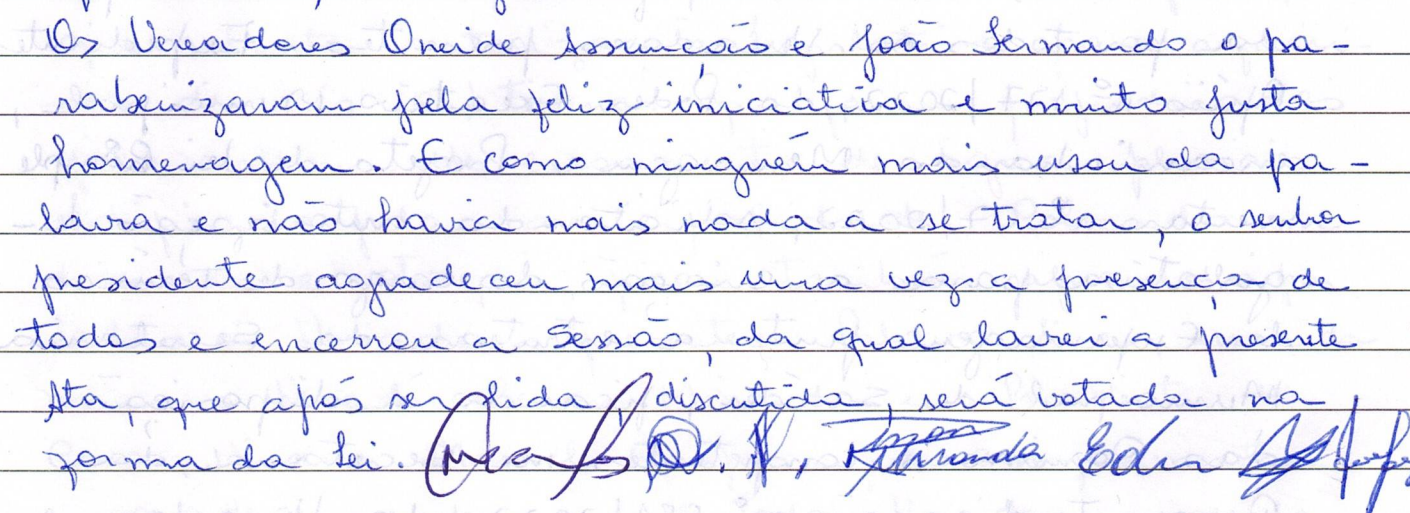 Os Vereadores Oneide Assunção e João Fernando o pa-
rabenizaram pela feliz iniciativa e muito justa
homenagem. E como ninguém mais usou da pa-
lavra e não havia mais nada a se tratar, o senhor
presidente agradeceu mais uma vez a presença de
todos e encerrou a Sessão, da qual lavrei a presente
Ata, que após ser lida, discutida, será votada na
forma da Lei.